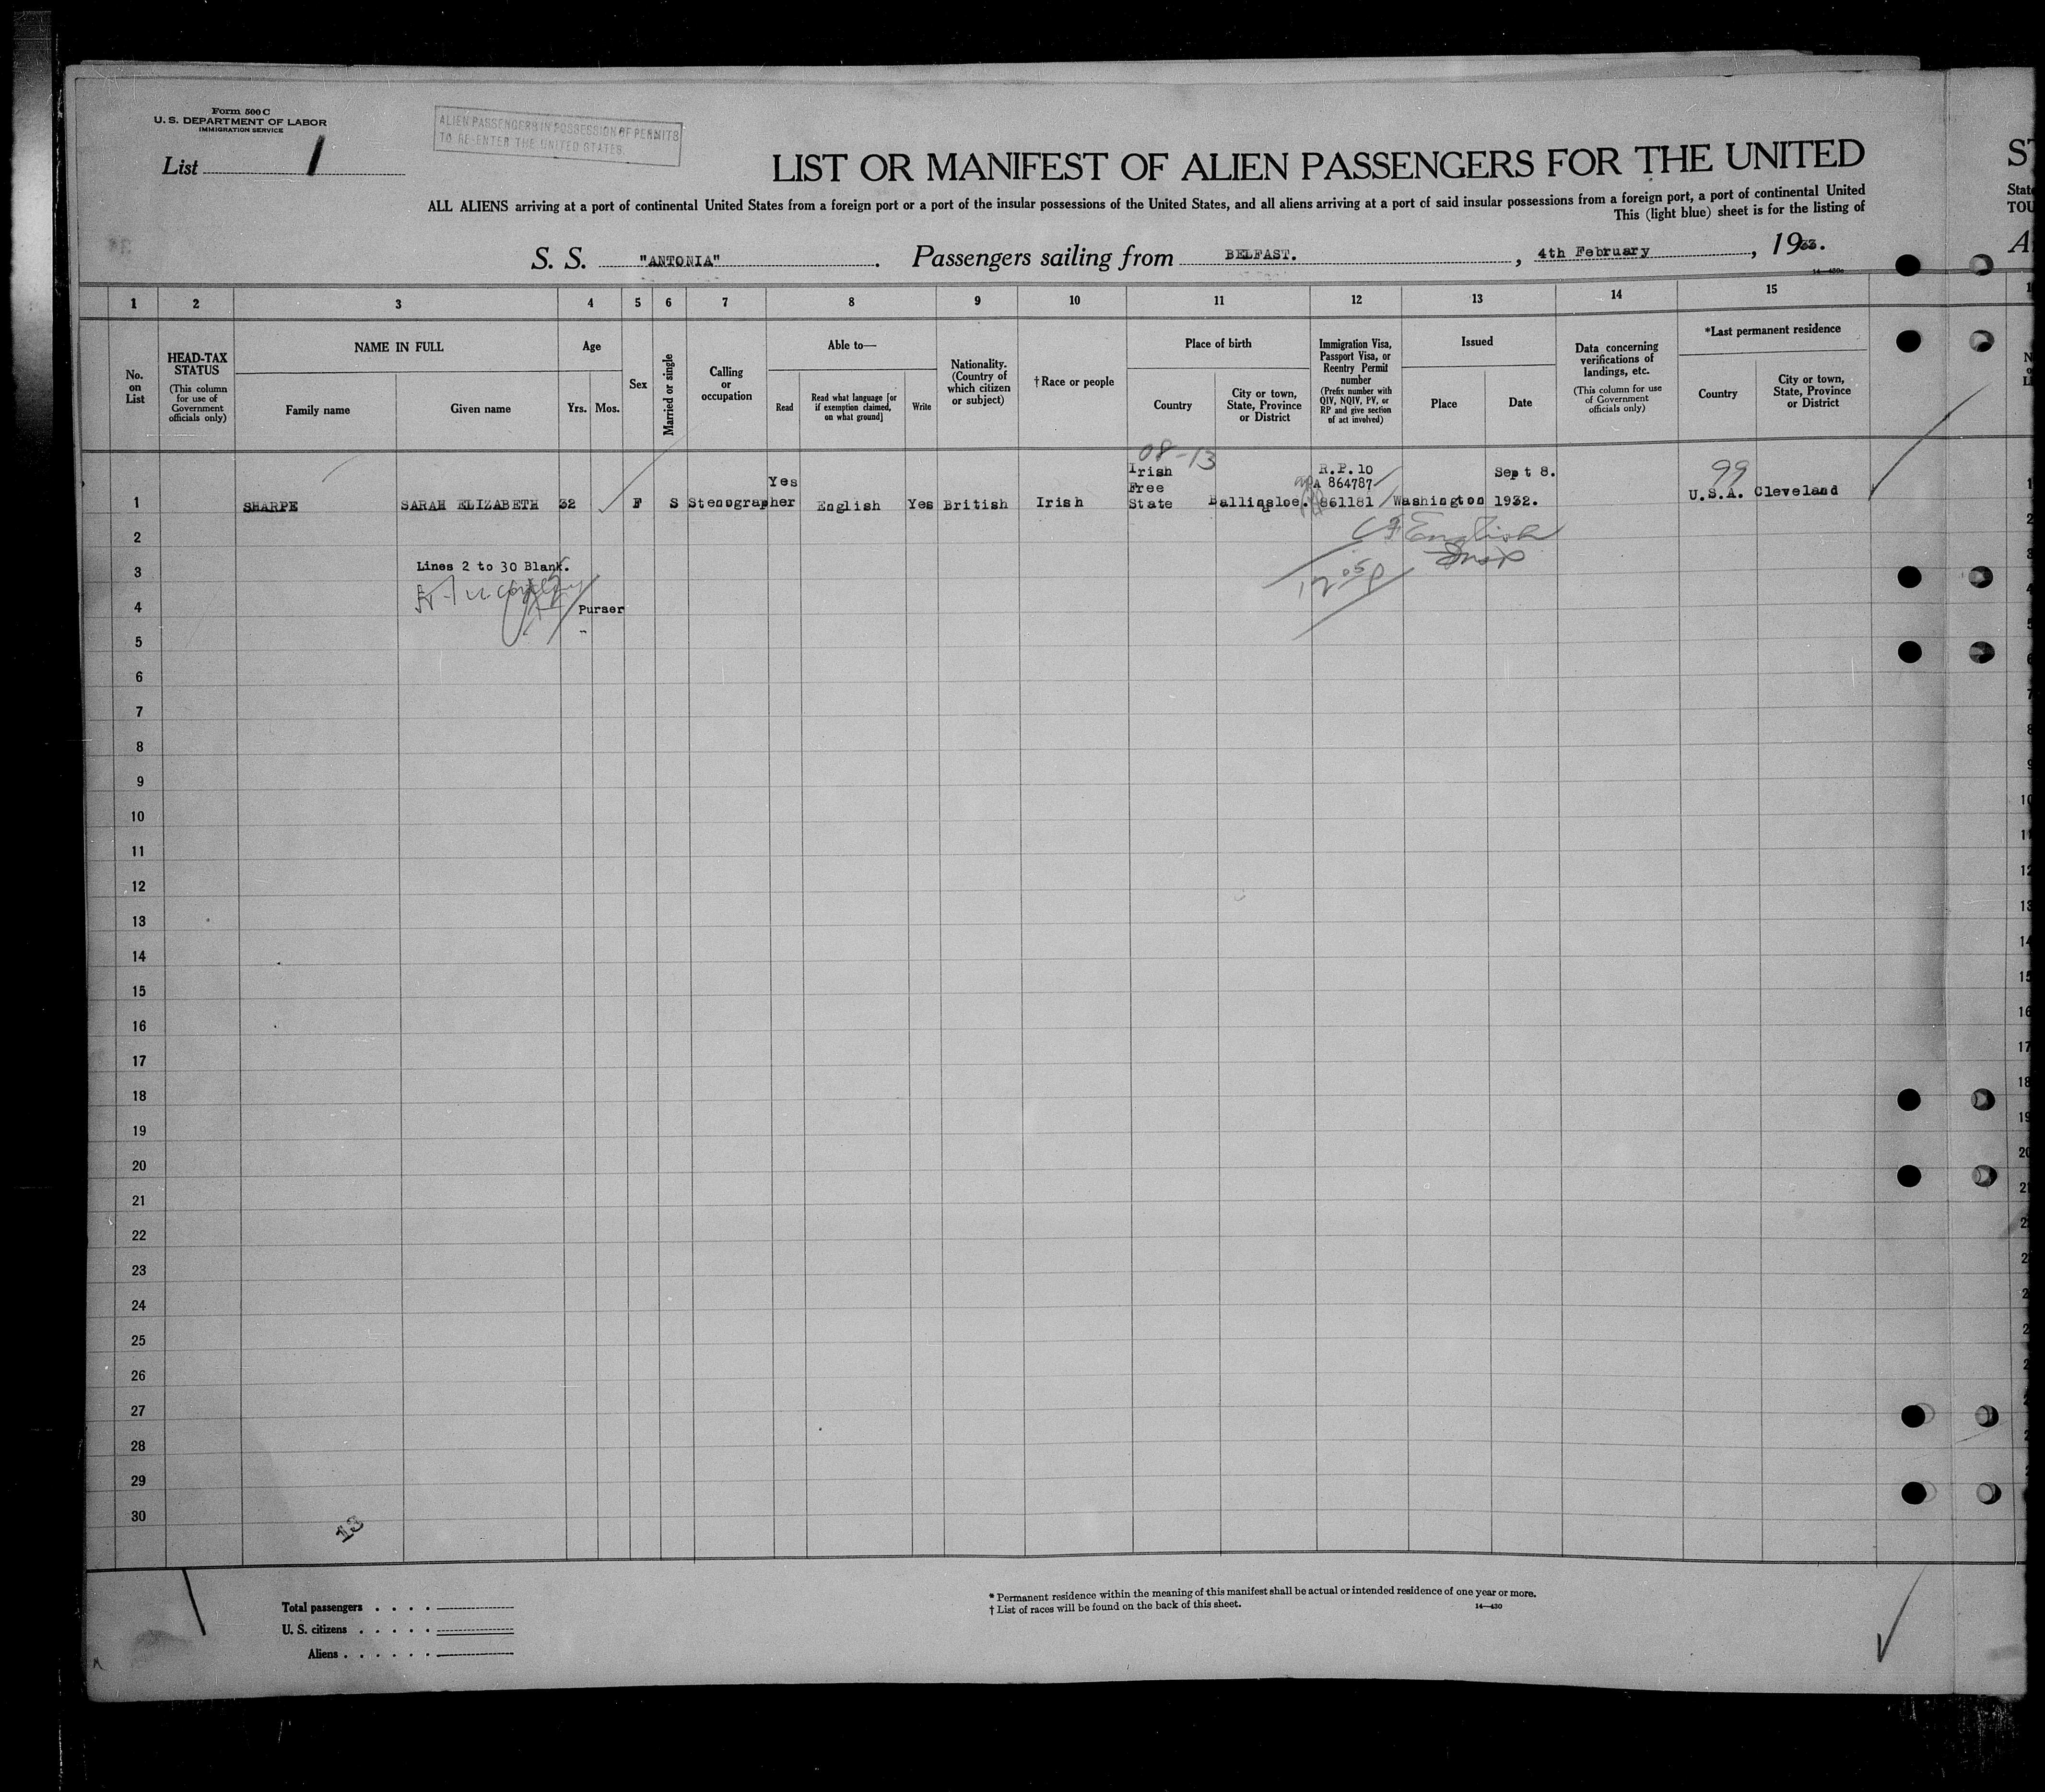 Form 500 C
U. S. DEPARTMENT OF LABOR
IMMIGRATION SERVICE
List 1
ALIEN PASSENGERS IN POSSESSION OF PERMITS
TO RE-ENTER THE UNITED STATES.
LIST OR MANIFEST OF ALIEN PASSENGERS FOR THE UNITED
ALL ALIENS arriving at a port of continental United States from a foreign port or a port of the insular possessions of the United States, and all aliens arriving at a port of said insular possessions from a foreign port, a port of continental United
This (light blue) sheet is for the listing of
S. S. "ANTONIA". Passengers sailing from BELFAST., 4th February, 1933.
1 2 3 4 5 6 7 8 9 10 11 12 13 14 15
No. on List
HEAD-TAX STATUS
(This column for use of Government officials only)
NAME IN FULL
Family name
Given name
Age
Yrs. Mos.
Sex
Married or single
Calling or occupation
Able to—
Read
Read what language [or if exemption claimed, on what ground]
Write
Nationality. (Country of which citizen or subject)
† Race or people
Place of birth
Country
City or town, State, Province or District
Immigration Visa, Passport Visa, or Reentry Permit number
(Prefix number with QIV, NQIV, PV, or RP and give section of act involved)
Issued
Place
Date
Data concerning verifications of landings, etc.
(This column for use of Government officials only)
*Last permanent residence
Country
City or town, State, Province or District
08-13
99
1 SHARPE SARAH ELIZABETH 32 F S Stenographer Yes English Yes British Irish Irish Free State Ballinasloe. R.P. 10 A 864787 861181 Washington Sept 8. 1932. U.S.A. Cleveland
2
English
3 Lines 2 to 30 Blank.
4 Purser
5
6
7
8
9
10
11
12
13
14
15
16
17
18
19
20
21
22
23
24
25
26
27
28
29
30
13
Total passengers
U. S. citizens
Aliens
* Permanent residence within the meaning of this manifest shall be actual or intended residence of one year or more.
† List of races will be found on the back of this sheet.
14—430